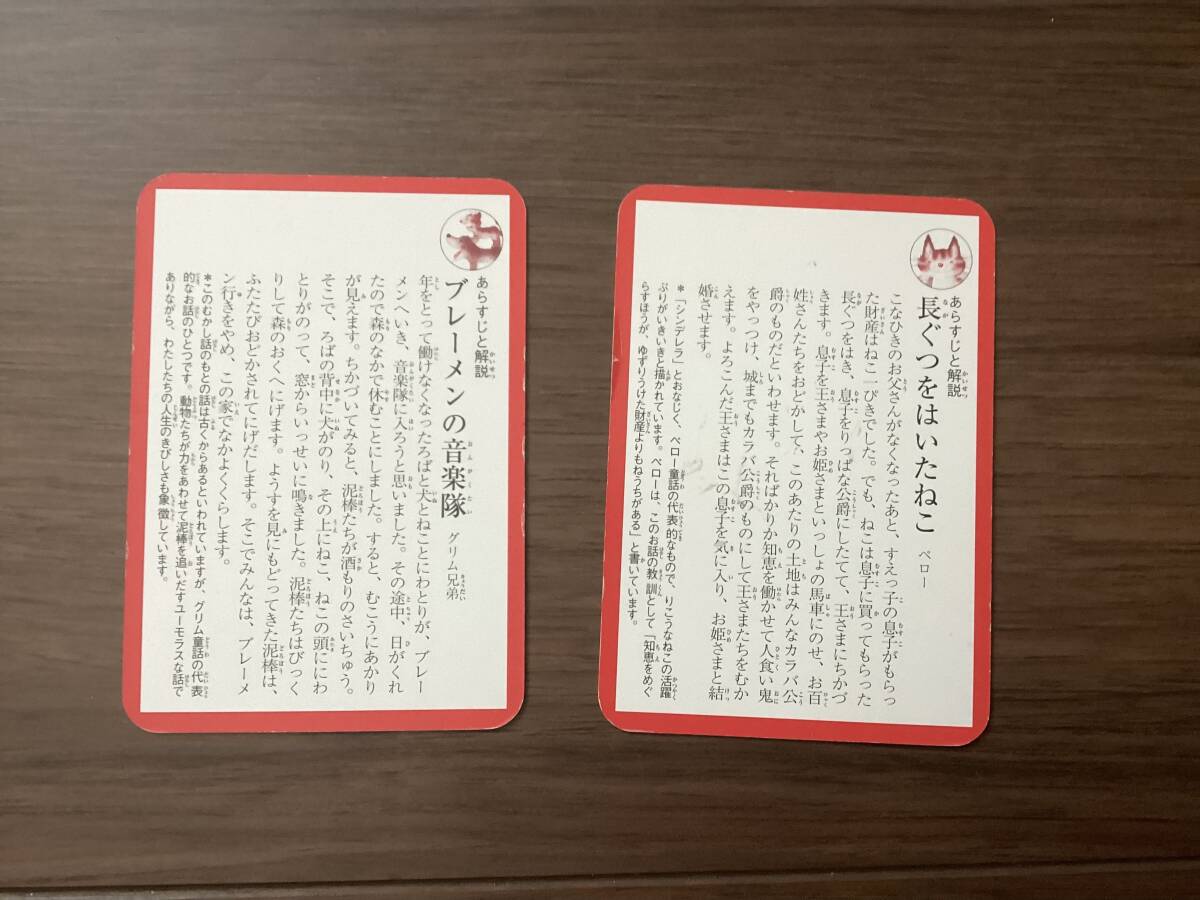 あらすじと解説
長ぐつをはいたねこ ペロー
こなひきのお父さんがなくなったあと、すえっ子の息子がもらっ
た財産はねこ一ぴきでした。でも、ねこは息子に買ってもらった
長ぐつをはき、息子をりっぱな公爵にしたてて、王さまにちかづ
きます。息子を王さまやお姫さまといっしょの馬車にのせ、お百
姓さんたちをおどかして、このあたりの土地はみんなカラバ公
爵のものだといわせます。そればかりか知恵を働かせて人食い鬼
をやっつけ、城までもカラバ公爵のものにして王さまたちをむか
えます。よろこんだ王さまはこの息子を気に入り、お姫さまと結
婚させます。
＊「シンデレラ」とおなじく、ペロー童話の代表的なもので、りこうなねこの活躍
ぶりがいきいきと描かれています。ペローは、このお話の教訓として「知恵をめぐ
らすほうが、ゆずりうけた財産よりもねうちがある」と書いています。
あらすじと解説
ブレーメンの音楽隊 グリム兄弟
年をとって働けなくなったろばと犬とねことにわとりが、ブレー
メンへいき、音楽隊に入ろうと思いました。その途中、日がくれ
たので森のなかで休むことにしました。すると、むこうにあかり
が見えます。ちかづいてみると、泥棒たちが酒もりのさいちゅう。
そこで、ろばの背中に犬がのり、その上にねこ、ねこの頭ににわ
とりがのって、窓からいっせいに鳴きました。泥棒たちはびっく
りして森のおくへにげます。ようすを見にもどってきた泥棒は、
ふたたびおどかされてにげだします。そこでみんなは、ブレーメ
ン行きをやめ、この家でなかよくくらします。
＊このむかし話のもとの話は古くからあるといわれていますが、グリム童話の代表
的なお話のひとつです。動物たちが力をあわせて泥棒を追いだすユーモラスな話で
ありながら、わたしたちの人生のきびしさも象徴しています。